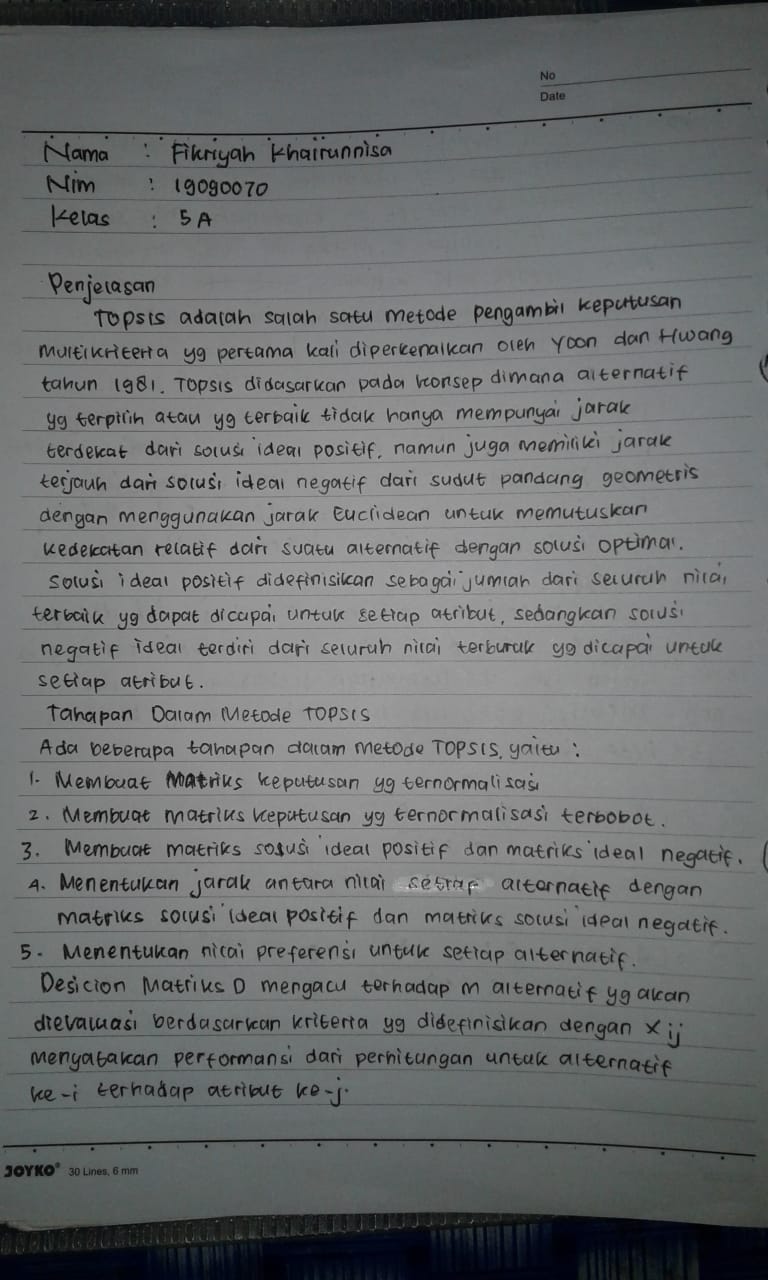 No
Date
Nama : Fikriyah Khairunnisa
Nim : 19090070
Kelas : 5 A
Penjelasan
TOPSIS adalah salah satu metode pengambil keputusan
Multikriteria yg pertama kali diperkenalkan oleh Yoon dan Hwang
tahun 1981. TOPSIS didasarkan pada konsep dimana alternatif
yg terpilih atau yg terbaik tidak hanya mempunyai jarak
terdekat dari solusi ideal positif, namun juga memiliki jarak
terjauh dari solusi ideal negatif dari sudut pandang geometris
dengan menggunakan jarak Euclidean untuk memutuskan
kedekatan relatif dari suatu alternatif dengan solusi optimal.
Solusi ideal positif didefinisikan sebagai jumlah dari seluruh nilai
terbaik yg dapat dicapai untuk setiap atribut, sedangkan solusi
negatif ideal terdiri dari seluruh nilai terburuk yg dicapai untuk
setiap atribut.
Tahapan Dalam Metode TOPSIS
Ada beberapa tahapan dalam metode TOPSIS, yaitu :
1. Membuat Matriks keputusan yg ternormalisasi
2. Membuat matriks keputusan yg ternormalisasi terbobot.
3. Membuat matriks sosusi ideal positif dan matriks ideal negatif.
4. Menentukan jarak antara nilai setiap alternatif dengan
matriks solusi ideal positif dan matriks solusi ideal negatif.
5. Menentukan nilai preferensi untuk setiap alternatif.
Desicion Matriks D mengacu terhadap m alternatif yg akan
dievaluasi berdasarkan kriteria yg didefinisikan dengan x ij
menyatakan performansi dari perhitungan untuk alternatif
ke-i terhadap atribut ke-j.
JOYKO® 30 Lines, 6 mm